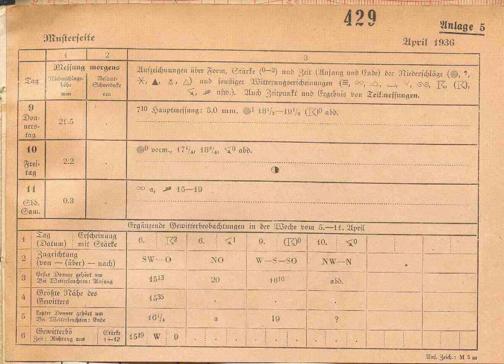 429
Anlage 5
Musterseite
April 1936
1
2
3
Tag
Messung morgens
Niederschlags-
höhe
mm
cm
Aufzeichnungen über Form, Stärke (0–2) und Zeit (Anfang und Ende) der Niederschläge
und sonstiger Witterungserscheinungen
usw.). Auch Zeitpunkt und Ergebnis von Teilmessungen.
9
Don-
ners-
tag
21.5
7¹⁰ Hauptmessung: 8.0 mm.
abd.
10
Frei-
tag
2.2
vorm.,
11
Sbd.
Sam.
0.3
∞ a, 15—19
Ergänzende Gewitterbeobachtungen in der Woche vom 5.—11. April
1
Tag
(Datum)
Erscheinung
mit Stärke
6.
6.
9.
10.
2
Zugrichtung
(von — (über) — nach)
SW—O
NO
W—S—SO
NW—N
3
Erster Donner gehört um
Bei Wetterleuchten: Anfang
15¹³
20
18¹⁰
abd.
4
Größte Nähe des
Gewitters
15³⁵
5
Letzter Donner gehört um
Bei Wetterleuchten: Ende
a
19
?
6
Gewitterbö
Zeit: Richtung aus
Stärke
1—12
15¹⁹ W 9